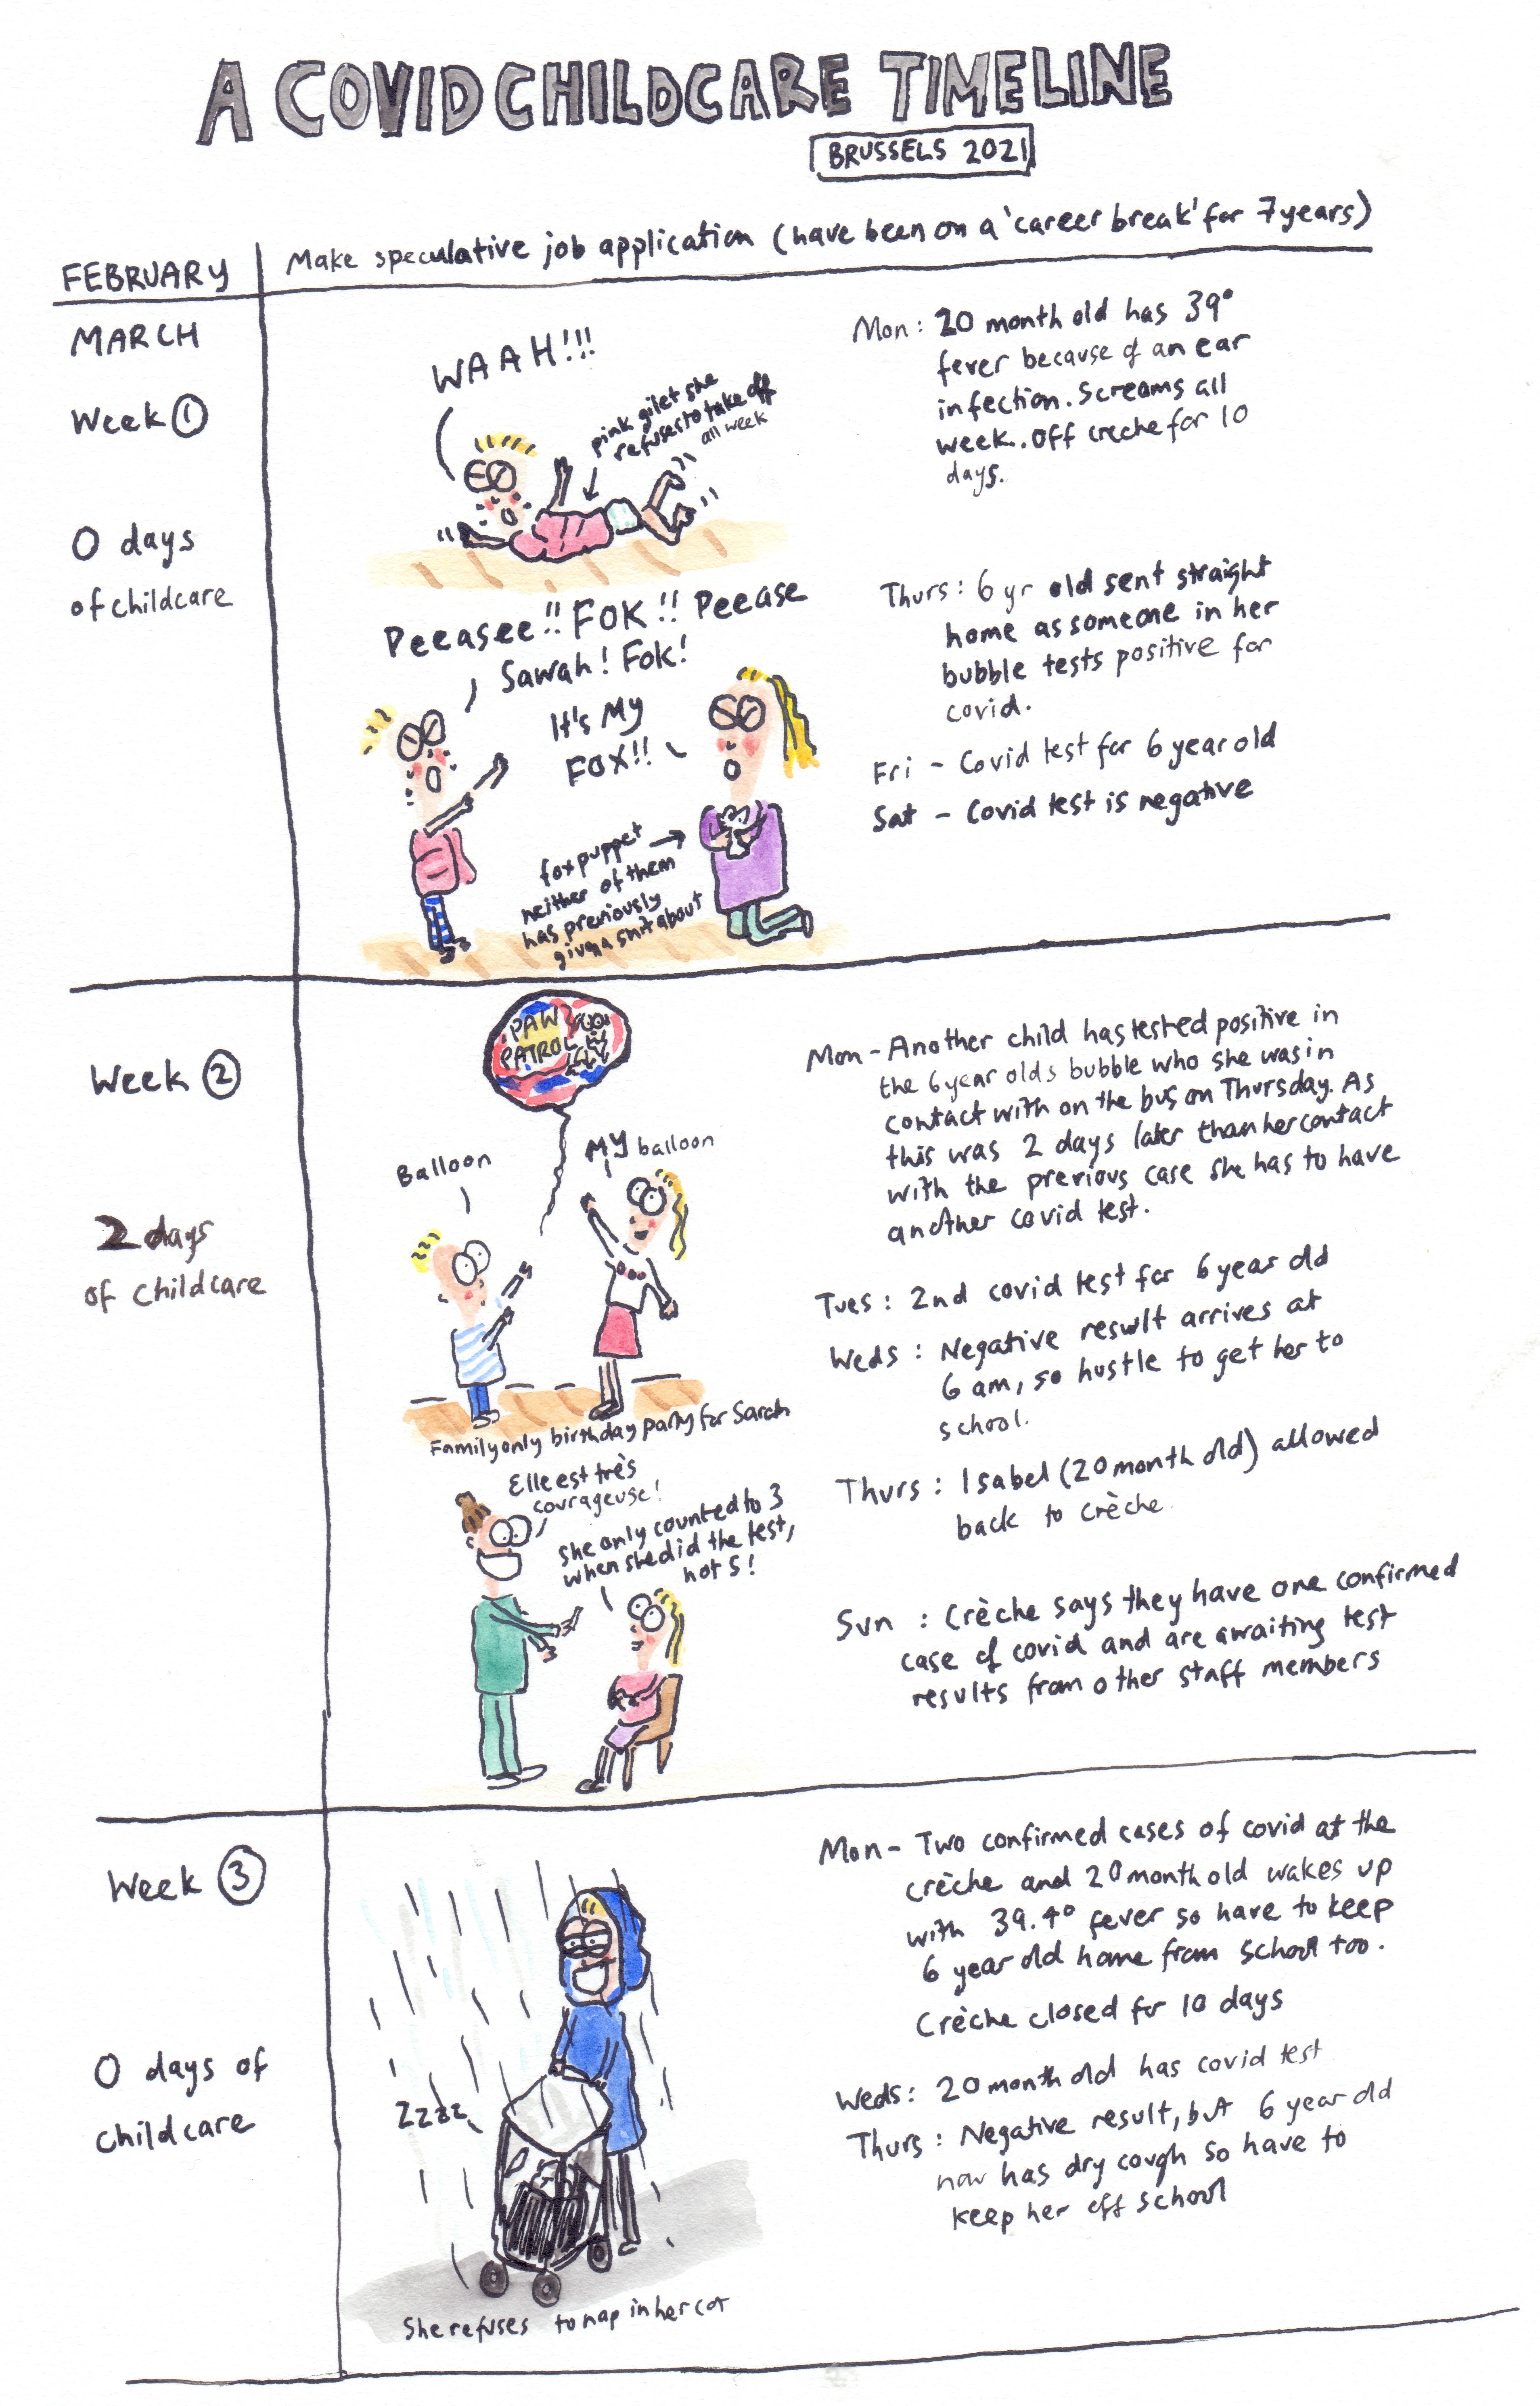 A COVID CHILDCARE TIMELINE
BRUSSELS 2021
FEBRUARY
Make speculative job application (have been on a 'career break' for 7 years)
MARCH
Week 1
0 days
of childcare
WAAH!!!
pink gilet she
refuses to take off
all week
Mon: 20 month old has 39°
fever because of an ear
infection. Screams all
week. Off creche for 10
days.
Peeasee!! FOK!! Peease
Sawah! Fok!
It's My
FOX!!
fox puppet
neither of them
has previously
given a shit about
Thurs: 6 yr old sent straight
home as someone in her
bubble tests positive for
covid.
Fri - Covid test for 6 year old
Sat - Covid test is negative
Week 2
2 days
of childcare
PAW
PATROL
Balloon
MY balloon
Family only birthday party for Sarah
Elle est très
courageuse!
She only counted to 3
when she did the test,
not 5!
Mon - Another child has tested positive in
the 6 year olds bubble who she was in
contact with on the bus on Thursday. As
this was 2 days later than her contact
with the previous case she has to have
another covid test.
Tues: 2nd covid test for 6 year old
Weds: Negative result arrives at
6 am, so hustle to get her to
school.
Thurs: Isabel (20 month old) allowed
back to crèche.
Sun: Crèche says they have one confirmed
case of covid and are awaiting test
results from other staff members
Week 3
0 days of
childcare
Zzzz
She refuses to nap in her cot
Mon - Two confirmed cases of covid at the
crèche and 20 month old wakes up
with 39.4° fever so have to keep
6 year old home from school too.
Crèche closed for 10 days
Weds: 20 month old has covid test
Thurs: Negative result, but 6 year old
now has dry cough so have to
keep her off school